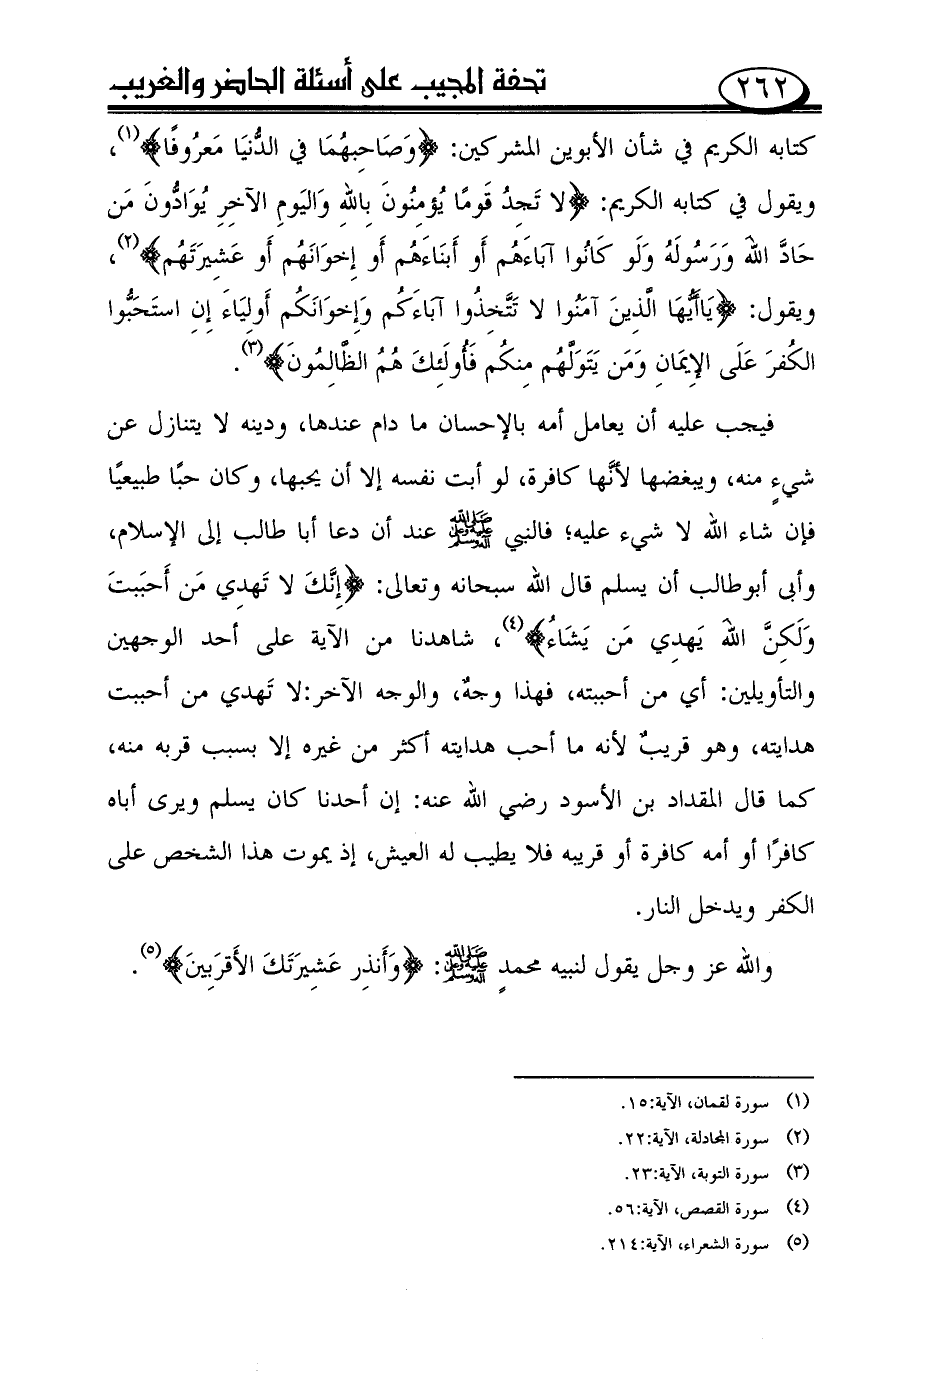 تحفة المجيب على أسئلة الحاضر والغريب
٢٦٢
كتابه الكريم في شأن الأبوين المشركين: ﴿وَصَاحِبهُمَا في الدُّنيَا مَعرُوفًا﴾(١)،
ويقول في كتابه الكريم: ﴿لا تَجدُ قَومًا يُؤمنُونَ بالله وَاليَومِ الآخرِ يُوَادُّونَ مَن
حَادَّ اللهَ وَرَسُولَهُ وَلَو كَانُوا آبَاءَهُم أَو أَبنَاءَهُم أَو إخوَانَهُم أَو عَشيرَتَهُم﴾(٢)،
ويقول: ﴿يَاأَيُّهَا الَّذينَ آمَنُوا لا تَتَّخِذُوا آبَاءَكُم وَإِخوَانَكُم أَوليَاءَ إِنِ استَحَبُّوا
الكُفرَ عَلَى الإِيمَانِ وَمَن يَتَوَلَّهُم مِنكُم فَأُولَئِكَ هُمُ الظَّالمُونَ﴾(٣).
فيجب عليه أن يعامل أمه بالإحسان ما دام عندها، ودينه لا يتنازل عن
شيءٍ منه، ويبغضها لأنَّها كافرة، لو أبت نفسه إلا أن يحبها، وكان حبًا طبيعيًا
فإن شاء الله لا شيء عليه؛ فالنبي ﷺ عند أن دعا أبا طالب إلى الإسلام،
وأبى أبوطالب أن يسلم قال الله سبحانه وتعالى: ﴿إِنَّكَ لا تَهدِي مَن أَحبَبتَ
وَلَكِنَّ اللهَ يَهدِي مَن يَشَاءُ﴾(٤)، شاهدنا من الآية على أحد الوجهين
والتأويلين: أي من أحببته، فهذا وجهٌ، والوجه الآخر:لا تَهدي من أحببت
هدايته، وهو قريبٌ لأنه ما أحب هدايته أكثر من غيره إلا بسبب قربه منه،
كما قال المقداد بن الأسود رضي الله عنه: إن أحدنا كان يسلم ويرى أباه
كافرًا أو أمه كافرة أو قريبه فلا يطيب له العيش، إذ يموت هذا الشخص على
الكفر ويدخل النار.
والله عز وجل يقول لنبيه محمدٍ ﷺ: ﴿وَأَنذِر عَشِيرَتَكَ الأَقرَبِينَ﴾(٥).
(١) سورة لقمان، الآية:١٥.
(٢) سورة المجادلة، الآية:٢٢.
(٣) سورة التوبة، الآية:٢٣.
(٤) سورة القصص، الآية:٥٦.
(٥) سورة الشعراء، الآية:٢١٤.